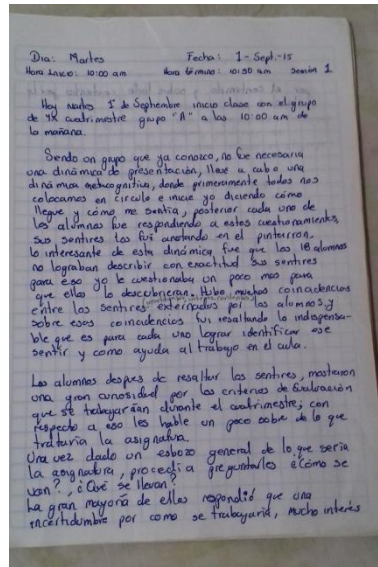 Dia: Martes Fecha: 1-Sept.-15
Hora Inicio: 10:00 am Hora término: 10:50 am Sesión 1
Hoy martes 1° de Septiembre inicio clase con el grupo
de 4to cuatrimestre grupo "A" a las 10:00 am de
la mañana.
Siendo un grupo que ya conozco, no fue necesaria
una dinámica de presentación, lleve a cabo una
dinámica metacognitiva, donde primeramente todos nos
colocamos en circulo e inicie yo diciendo cómo
llegue y cómo me sentía, posterior cada uno de
los alumnos fue respondiendo a estos cuestionamientos,
sus sentires los fui anotando en el pintarron.
lo interesante de esta dinámica fue que los 18 alumnos
no lograban describir con exactitud sus sentires
para eso yo le cuestionaba un poco mas para
que ellos lo descubrieran. Hubo muchas coincidencias
entre los sentires externados por los alumnos y
sobre esas coincidencias fui resaltando lo indispensa-
ble que es para cada uno lograr identificar ese
sentir y como ayuda al trabajo en el aula.
Los alumnos despues de resaltar los sentires, mostraron
una gran curiosidad por los criterios de Evaluación
que se trabajarían durante el cuatrimestre; con
respecto a eso les hable un poco sobre de lo que
trataría la asignatura.
Una vez dado un esbozo general de lo que sería
la asignatura, procedí a preguntarles ¿Cómo se
van?, ¿Qué se llevan?
La gran mayoría de ellos respondió que una
incertidumbre por como se trabajaría, mucho interés